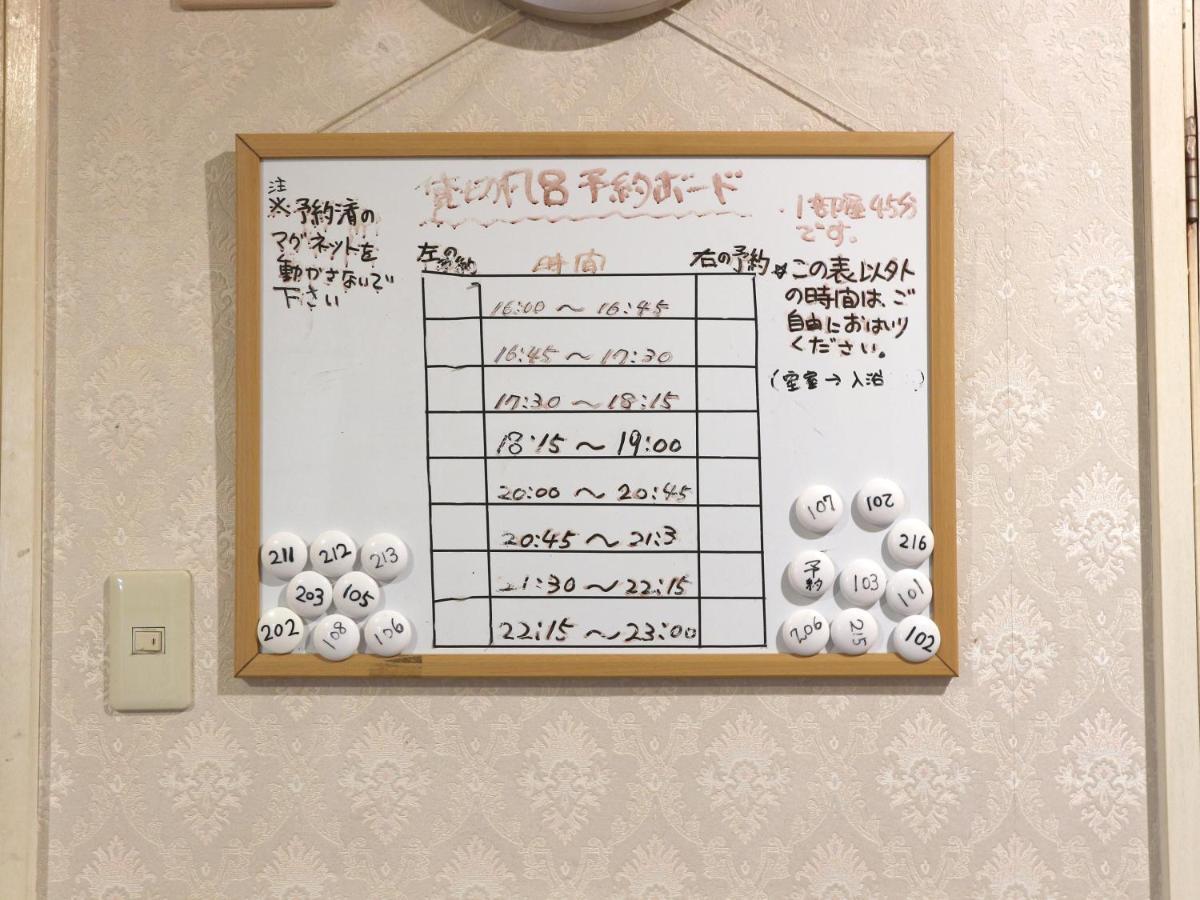 貸切風呂予約ボード
注
※予約済の
マグネットを
動かさないで
下さい
1部屋45分
です。
左の予約
時間
右の予約
※この表以外
の時間は、ご
自由におはいり
ください。
(空室→入浴)
16:00 ～ 16:45
16:45 ～ 17:30
17:30 ～ 18:15
18:15 ～ 19:00
20:00 ～ 20:45
20:45 ～ 21:3
21:30 ～ 22:15
22:15 ～ 23:00
211 212 213
203 105
202 108 106
107 102
216
予約 103 101
206 215 102